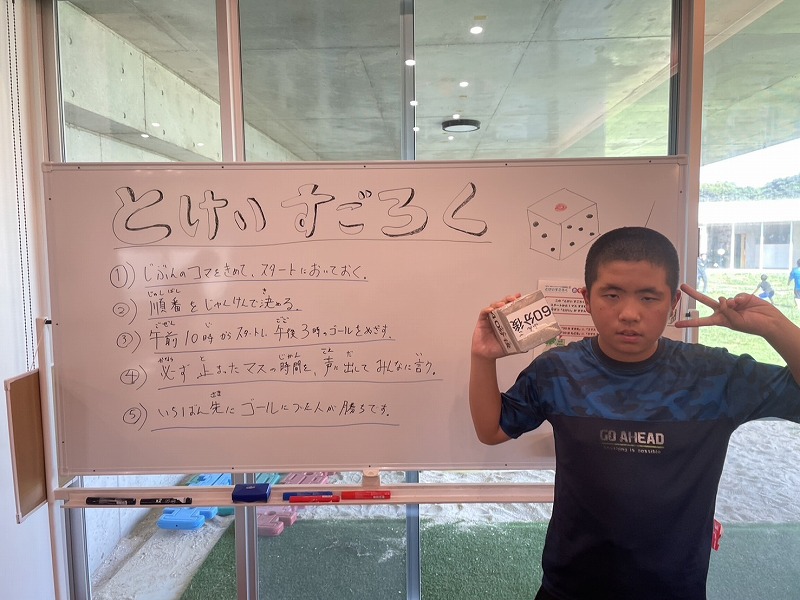 とけい すごろく
① じぶんのコマをきめて、スタートにおいておく。
② 順番をじゃんけんで決める。
③ 午前10時からスタートし、午後3時のゴールをめざす。
④ 必ず止まったマスの時間を、声に出してみんなに言う。
⑤ いちばん先にゴールについた人が勝ちです。
60分後
GO AHEAD